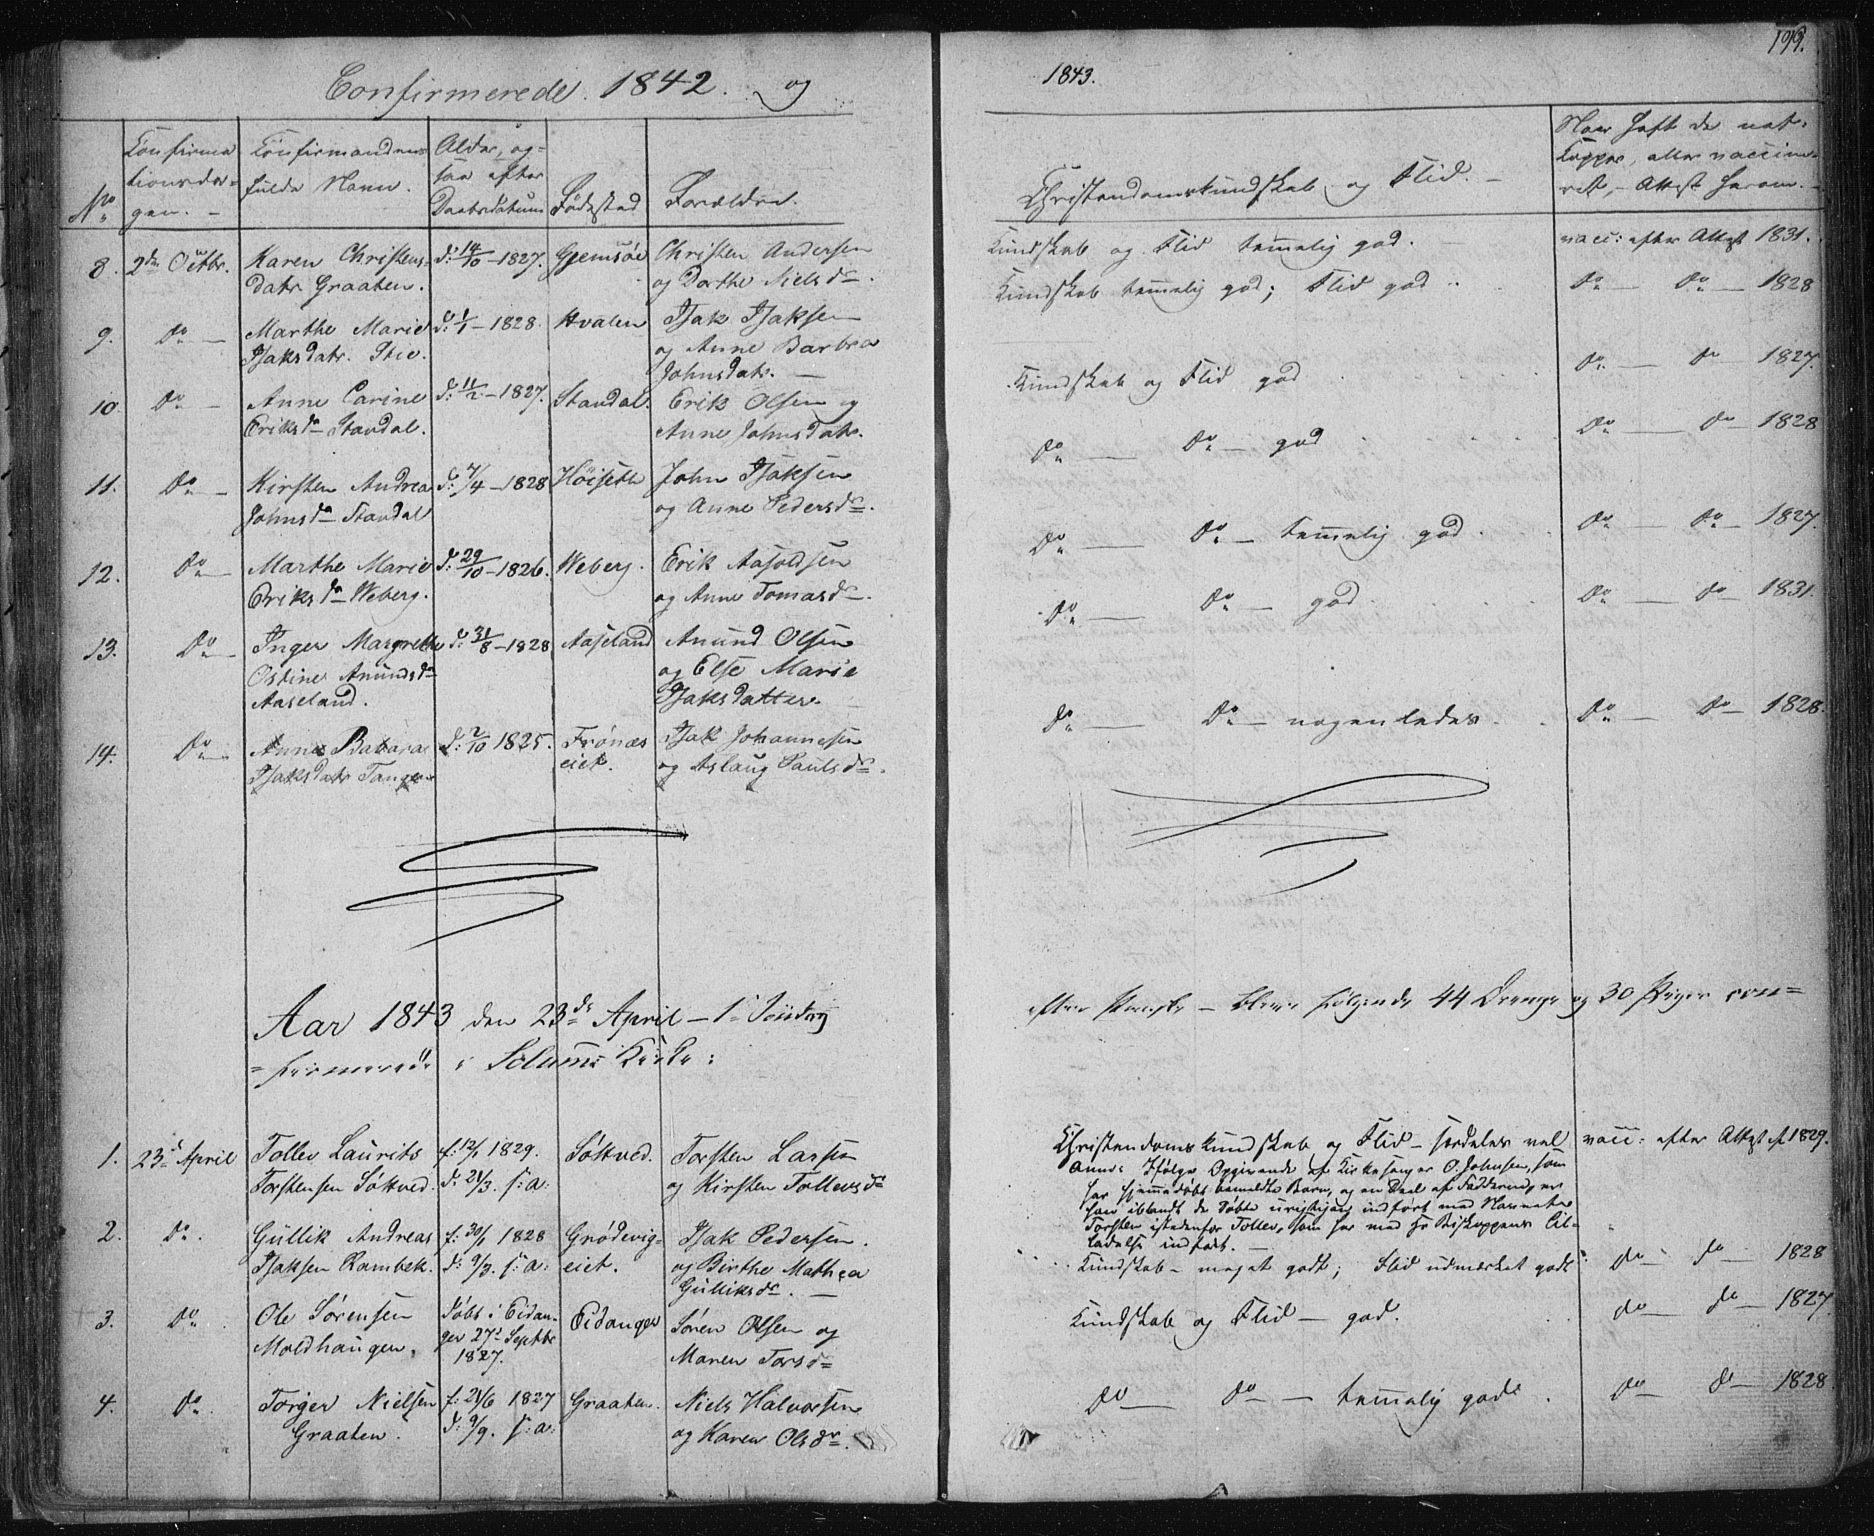 Confirmerede 1842. og
1843.
199.
No
Confirma
tionsda-
gen. -
Confirmandens
fulde Navn.
Alder, og-
saa efter
Daabsdatum
Fødested
Forældre.
Christendomskundskab og Flid. -
Naar haft de nat:
Kopper, eller vaccine-
ret, - Attest herom. -
8. 2den Octbr. Karen Christens- d: 14/10 - 1827. Gjemsøe Christen Andersen Kundskab og Flid temmelig god. vacc: efter Attest 1831.
datr Graaten. og Dorthe Nielsdr.
9. Do - Marthe Marie d: 1/1 - 1828. Hvalen Isak Isaksen Kundskab temmelig god; Flid god Do - Do - 1828
Isaksdatr. Stie. og Anne Barbra
Johnsdatr. -
10. Do - Anne Carine d: 11/2 - 1827. Standal. Erik Olsen og Kundskab og Flid god Do - Do 1827.
Eriksda Standal. Anne Johnsdatr.
11. Do - Kirsten Andrea d: 7/4 - 1828 Høiseth John Isaksen Do - Do - god Do - Do - 1828
Johnsda Standal og Anne Pedersdr.
12. Do - Marthe Marie d: 29/10 - 1826. Weberg. Erik Aasoldsen Do - Do - temmelig god. Do - Do - 1827.
Eriksda Weberg. og Anne Tomasdr.
13. Do - Inger Margrethe d: 31/8 - 1828 Aaseland Anund Olsen Do - Do - god Do - Do - 1831.
Ostine Anundsda og Else Marie
Aaseland. Isaksdatter.
14. Do - Anne Babara d: 2/10 1825. Frønæs Isak Johannesen Do - Do - nogenledes. Do - Do - 1828.
Isaksdatr Tangen eiet. og Aslaug Paulsdr.
Aar 1843 den 23de April - 1ste Søndag efter Paaske - bleve følgende 44 Drenge og 30 Piger con=
=firmerede i Solums Kirke:
1. 23de April Tollev Laurits f: 12/1 1829. Søtved. Torsten Larsen Christendomskundskab og Flid - særdeles vel vacc: efter Attest af 1829.
Torstensen Søtved. d: 21/3. s: a: og Kirsten Tollevsdr
Anm: Ifølge Opgivende af Kirkesanger O. Johnsen, som
har hjemmedøbt bemeldte Barn, og en Deel af Fadderne, er
han iblandt de Døbte urigtigen indført med Navnet
Torsten istedenfor Tollev, som her med Hr Biskoppens Til-
ladelse indført. -
2. Do. Gullik Andreas f: 30/1 1828 Grødevig- Isak Pedersen. Kundskab - meget godt; Flid udmærket godt Do - Do - 1828
Isaksen Rambek. d: 9/3. s: a: eiet. og Birthe Mathea
Gulliksdr. -
3. Do. Ole Sørensen Døbt i Eidan- Eidanger Søren Olsen og Kundskab og Flid - god. Do - Do - 1827.
Moldhaugen. ger 27de Septbr Maren Torsd=
1827.
4. Do. Torger Nielsen f: 21/6 1827 Graaten. Niels Halvorsen Do - Do - temmelig god. Do - Do - 1828
Graaten. d: 9/9. s: a: og Karen Olsdr.